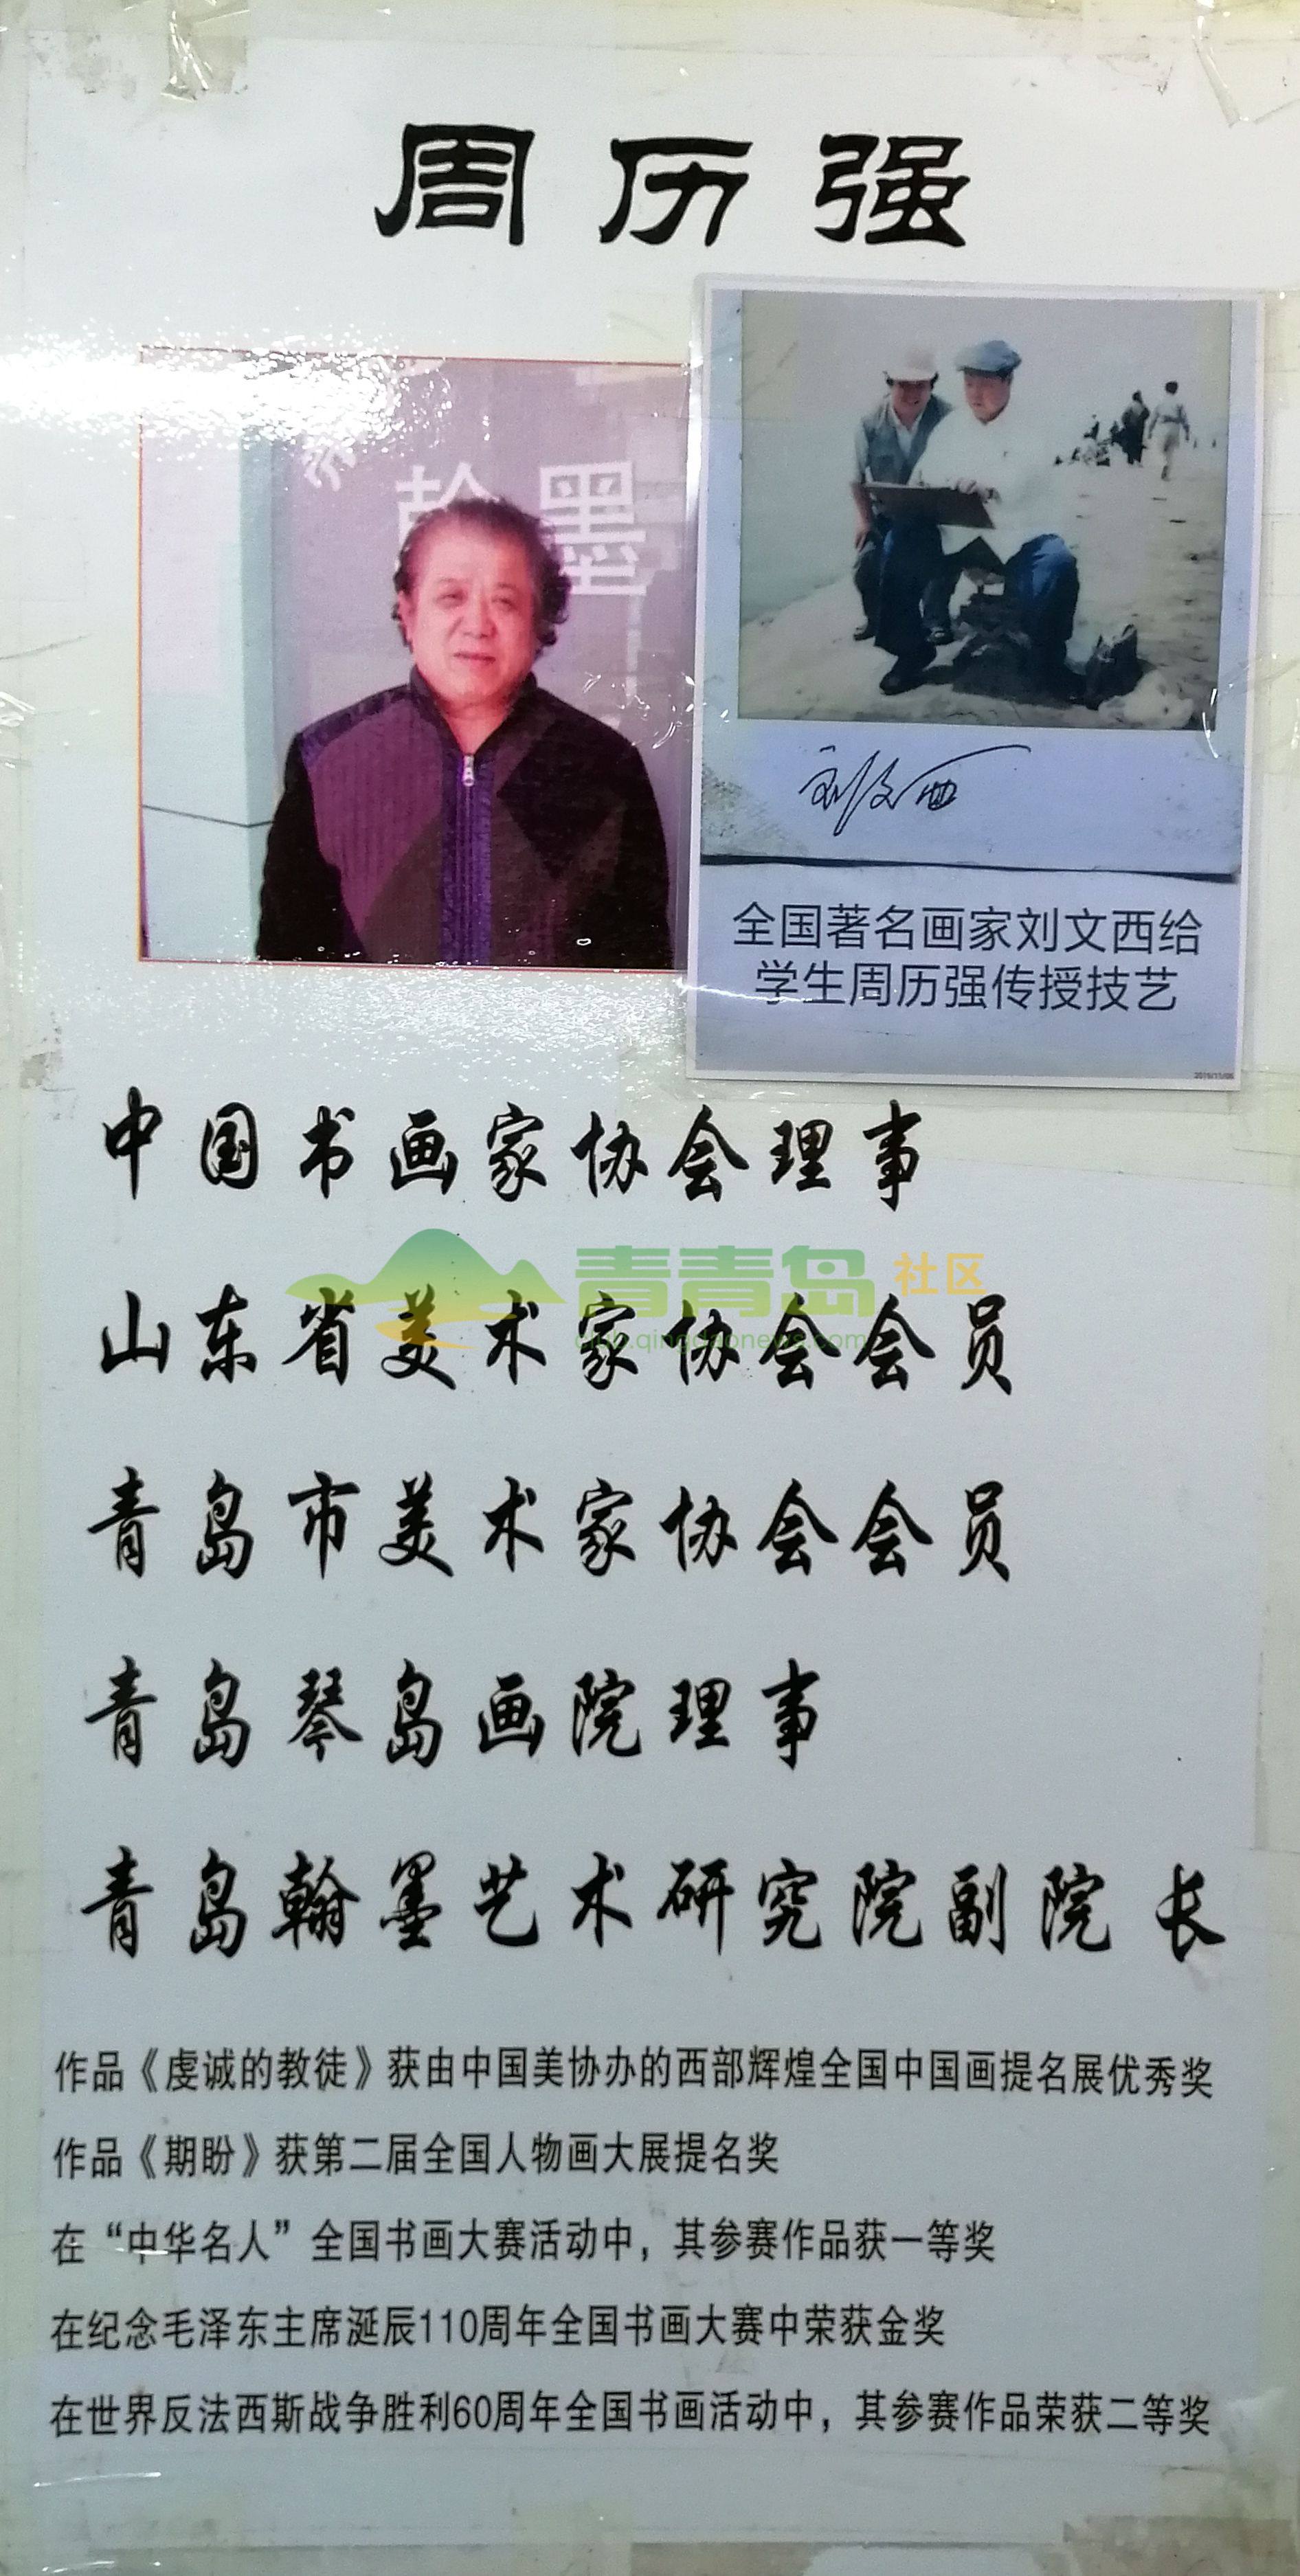 周历强
翰墨
刘文西
全国著名画家刘文西给
学生周历强传授技艺
中国书画家协会理事
青青岛社区
club.qingdaonews.com
山东省美术家协会会员
青岛市美术家协会会员
青岛琴岛画院理事
青岛翰墨艺术研究院副院长
作品《虔诚的教徒》获由中国美协办的西部辉煌全国中国画提名展优秀奖
作品《期盼》获第二届全国人物画大展提名奖
在“中华名人”全国书画大赛活动中，其参赛作品获一等奖
在纪念毛泽东主席诞辰110周年全国书画大赛中荣获金奖
在世界反法西斯战争胜利60周年全国书画活动中，其参赛作品荣获二等奖